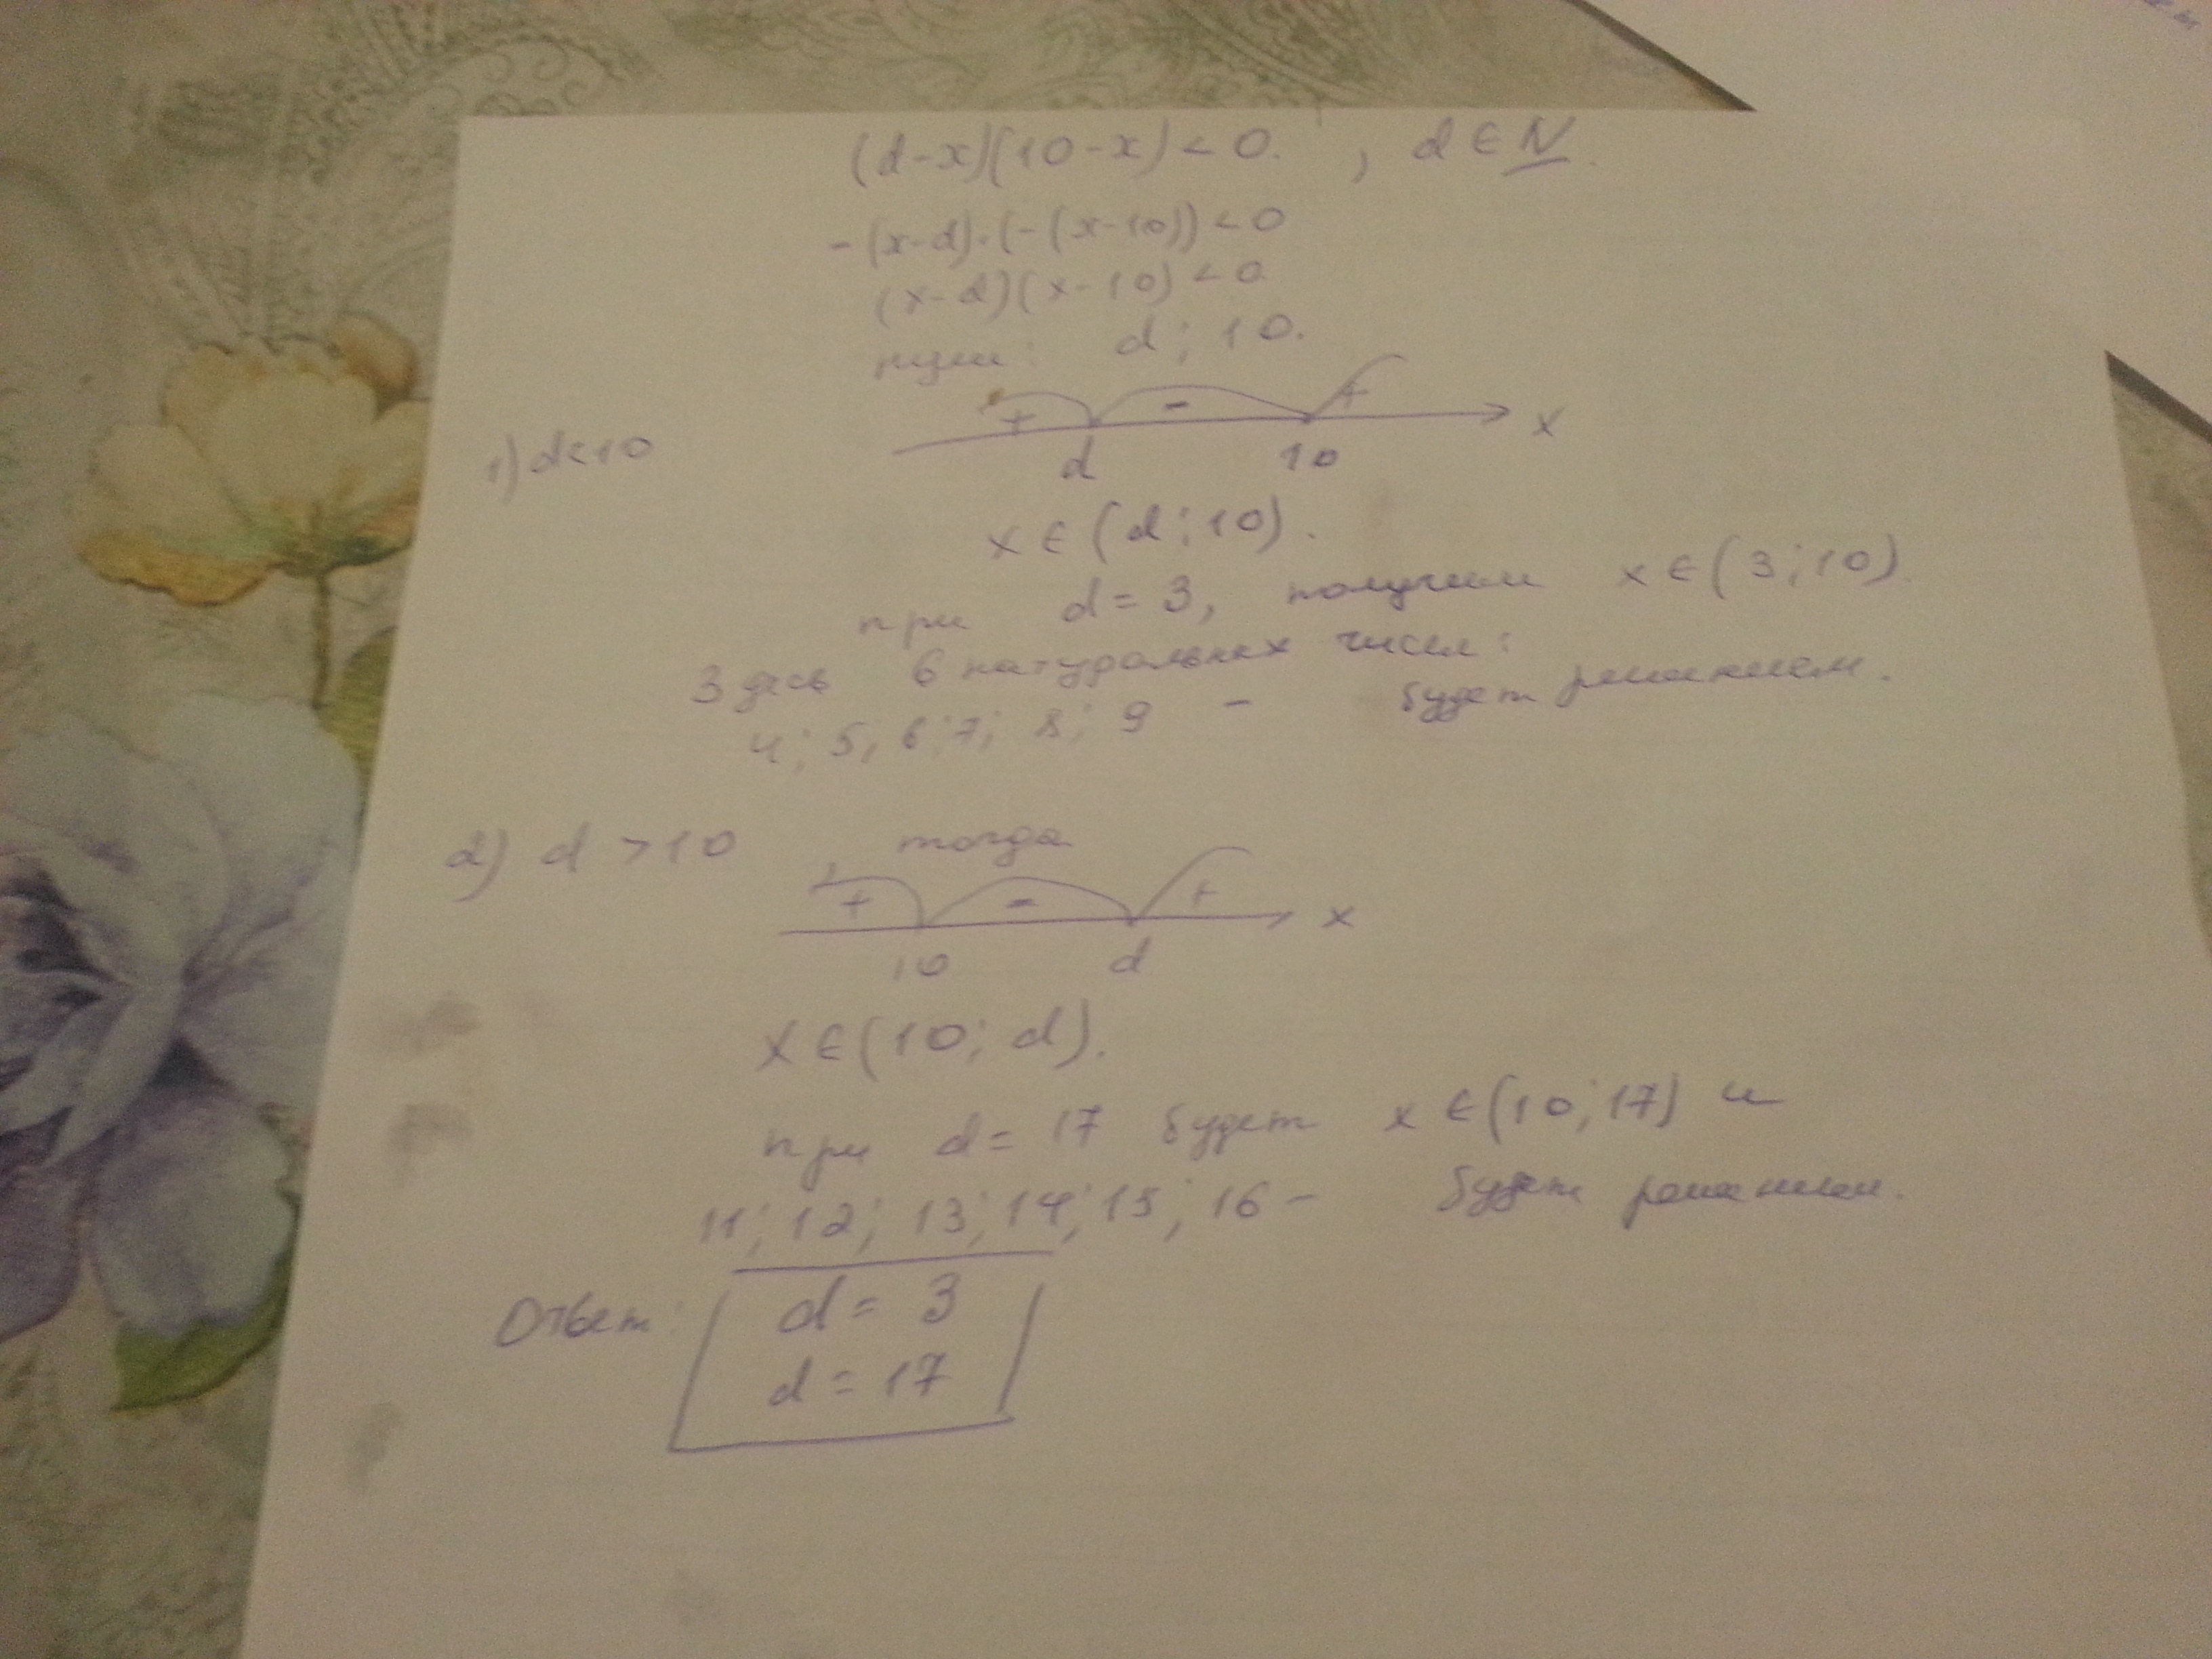 (d-x)(10-x) < 0. , d ∈ N.
-(x-d)·(-(x-10)) < 0
(x-d)(x-10) < 0
нули: d; 10.
1) d<10
+ - + x
d 10
x ∈ (d; 10).
при d = 3, получим x ∈ (3; 10)
Здесь 6 натуральных чисел:
4; 5; 6; 7; 8; 9 - будет решением.
2) d > 10 тогда
+ - + x
10 d
x ∈ (10; d).
при d = 17 будет x ∈ (10; 17) и
11; 12; 13; 14; 15; 16 - будет решением.
Ответ: d = 3
d = 17